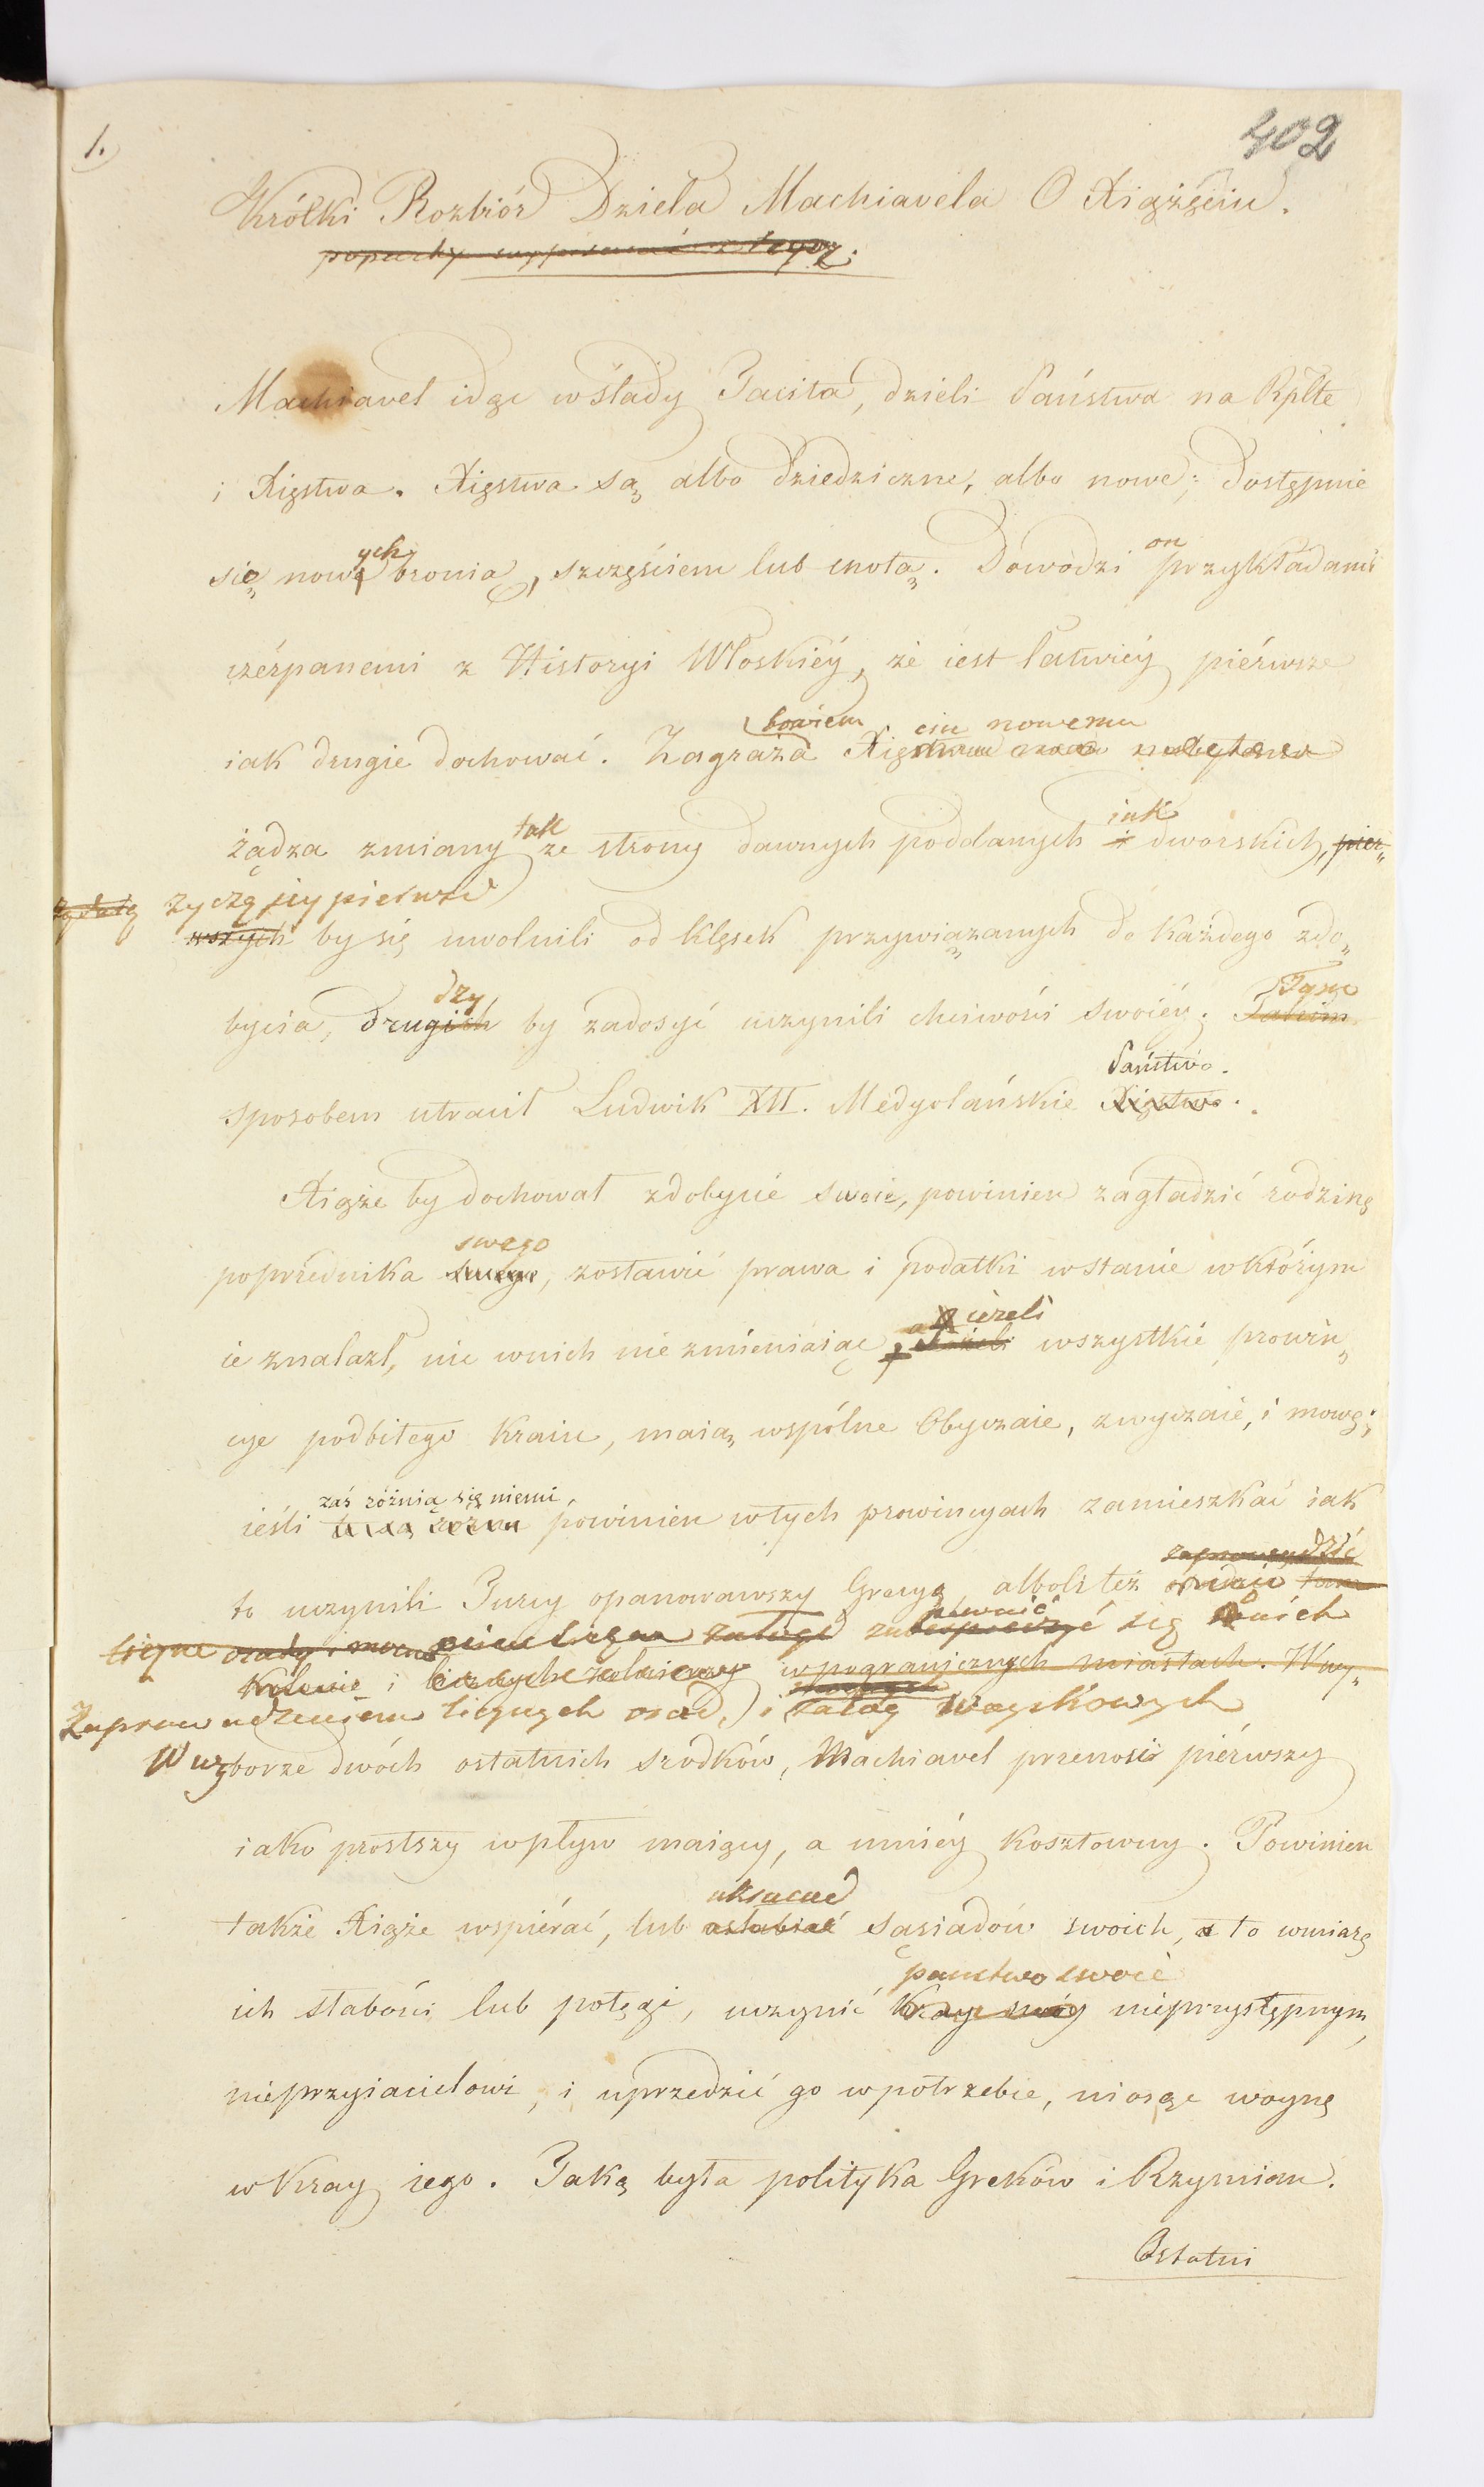 1.
402
Krótki Rozbiór Dzieła Machiavela O Xiążęciu.
Machiavel idąc w ślady Tacita, dzieli Państwa na Rplte
i Xięstwa. Xięstwa są albo dziedziczne, albo nowe; dostępuie
ych on
się nowę bronią, szczęściem lub cnotą. Dowodzi przykładami
czérpanemi z Historyi Włoskiéy, że iest łatwiéy piérwsze
bowiem ciu nowemu
iak drugie dochować. Zagraża Xięstwu
tak iak
żądza zmiany ze strony dawnych poddanych i dworskich, pier„
życzą iéy pierwsi
wszych by się uwolnili od klęsek przywiązanych do każdego zdo„
dzy Tym
bycia, drugich by zadosyć uczynili chciwości swoiéy. Takim
Państwo.
sposobem utracił Ludwik XII. Medyolańskie Xięstwo.
Xiąże by dochował zdobycie swoie, powinien zagładzić rodzinę
swego
poprzednika swego, zostawić prawa i podatki w stanie w którym
ieżeli
ie znalazł, nic w nich nie zmieniaiąc, Jeżeli wszystkie prowin„
cye podbitego kraiu, maią wspólne Obyczaie, zwyczaie, i mowę;
zaś różnią się niemi,
ieśli powinien w tych prowincyach zamieszkać iak
zaprowadzić
to uczynili Turcy opanowawszy Grecyą, alboli też osadzić tam
pewnić
liczne osady i mocne załogi zabespieczyć się w nich
kolonie i w pogranicznych miastach. W wy„
Zaprowadzeniem licznych osad, i załóg woyskowych
W wyborze dwóch ostatnich srodków, Machiavel przenosi piérwszy
iako prostszy wpływ maiący, a mniéy kosztowny. Powinien
także Xiąże wspiérać, lub osłabiać sąsiadów swoich, a to w miarę
panstwo swoie
ich słabości lub potęgi, uczynić kray swóy nieprzystępnym,
nieprzyiacielowi, i uprzedzić go w potrzebie, niosąc woynę
w kray iego. Taką była polityka Greków i Rzymian.
Ostatni